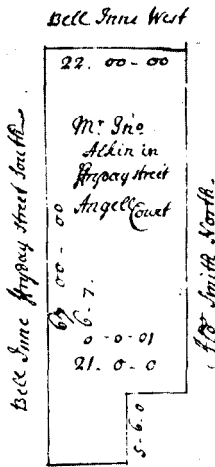 Bell Inne West
22. 00 - 00
Mr Jno
Alkin in
ffryday street
Angell Court
Bell Inne ffryday street South
00 - 00
6. 7.
0 - 0 - 01
21. 0 - 0
5 - 6. 0
Smith North.